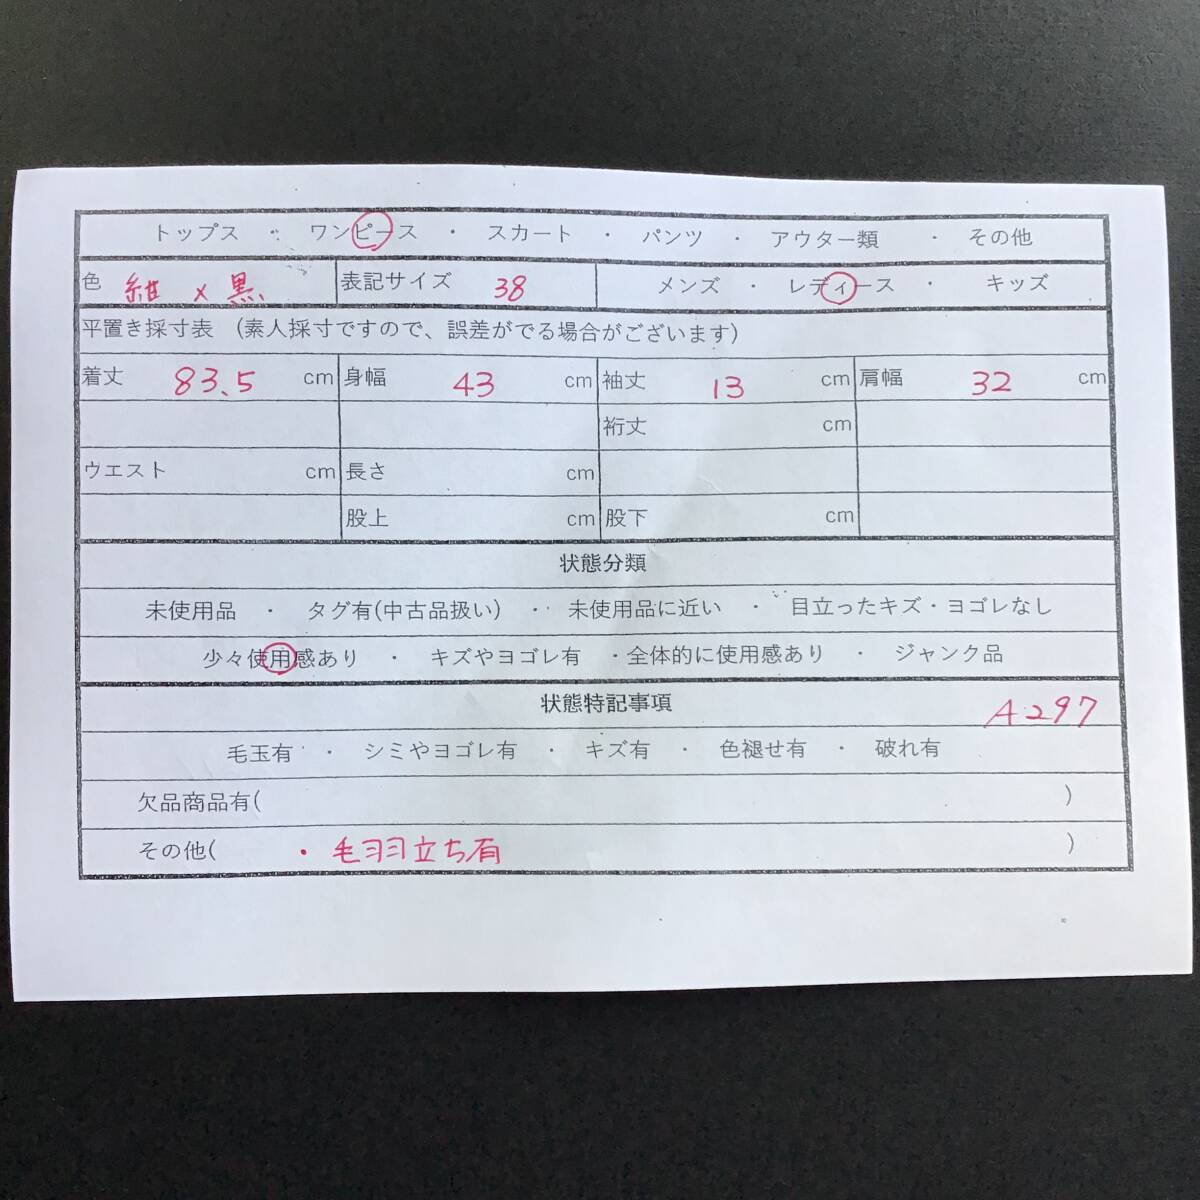 トップス ・ ワンピース ・ スカート ・ パンツ ・ アウター類 ・ その他
色 紺 × 黒 表記サイズ 38 メンズ ・ レディース ・ キッズ
平置き採寸表 (素人採寸ですので、誤差がでる場合がございます)
着丈 83.5 cm 身幅 43 cm 袖丈 13 cm 肩幅 32 cm
裄丈 cm
ウエスト cm 長さ cm
股上 cm 股下 cm
状態分類
未使用品 ・ タグ有(中古品扱い) ・ 未使用品に近い ・ 目立ったキズ・ヨゴレなし
少々使用感あり ・ キズやヨゴレ有 ・全体的に使用感あり ・ ジャンク品
状態特記事項 A297
毛玉有 ・ シミやヨゴレ有 ・ キズ有 ・ 色褪せ有 ・ 破れ有
欠品商品有( )
その他( ・毛羽立ち有 )